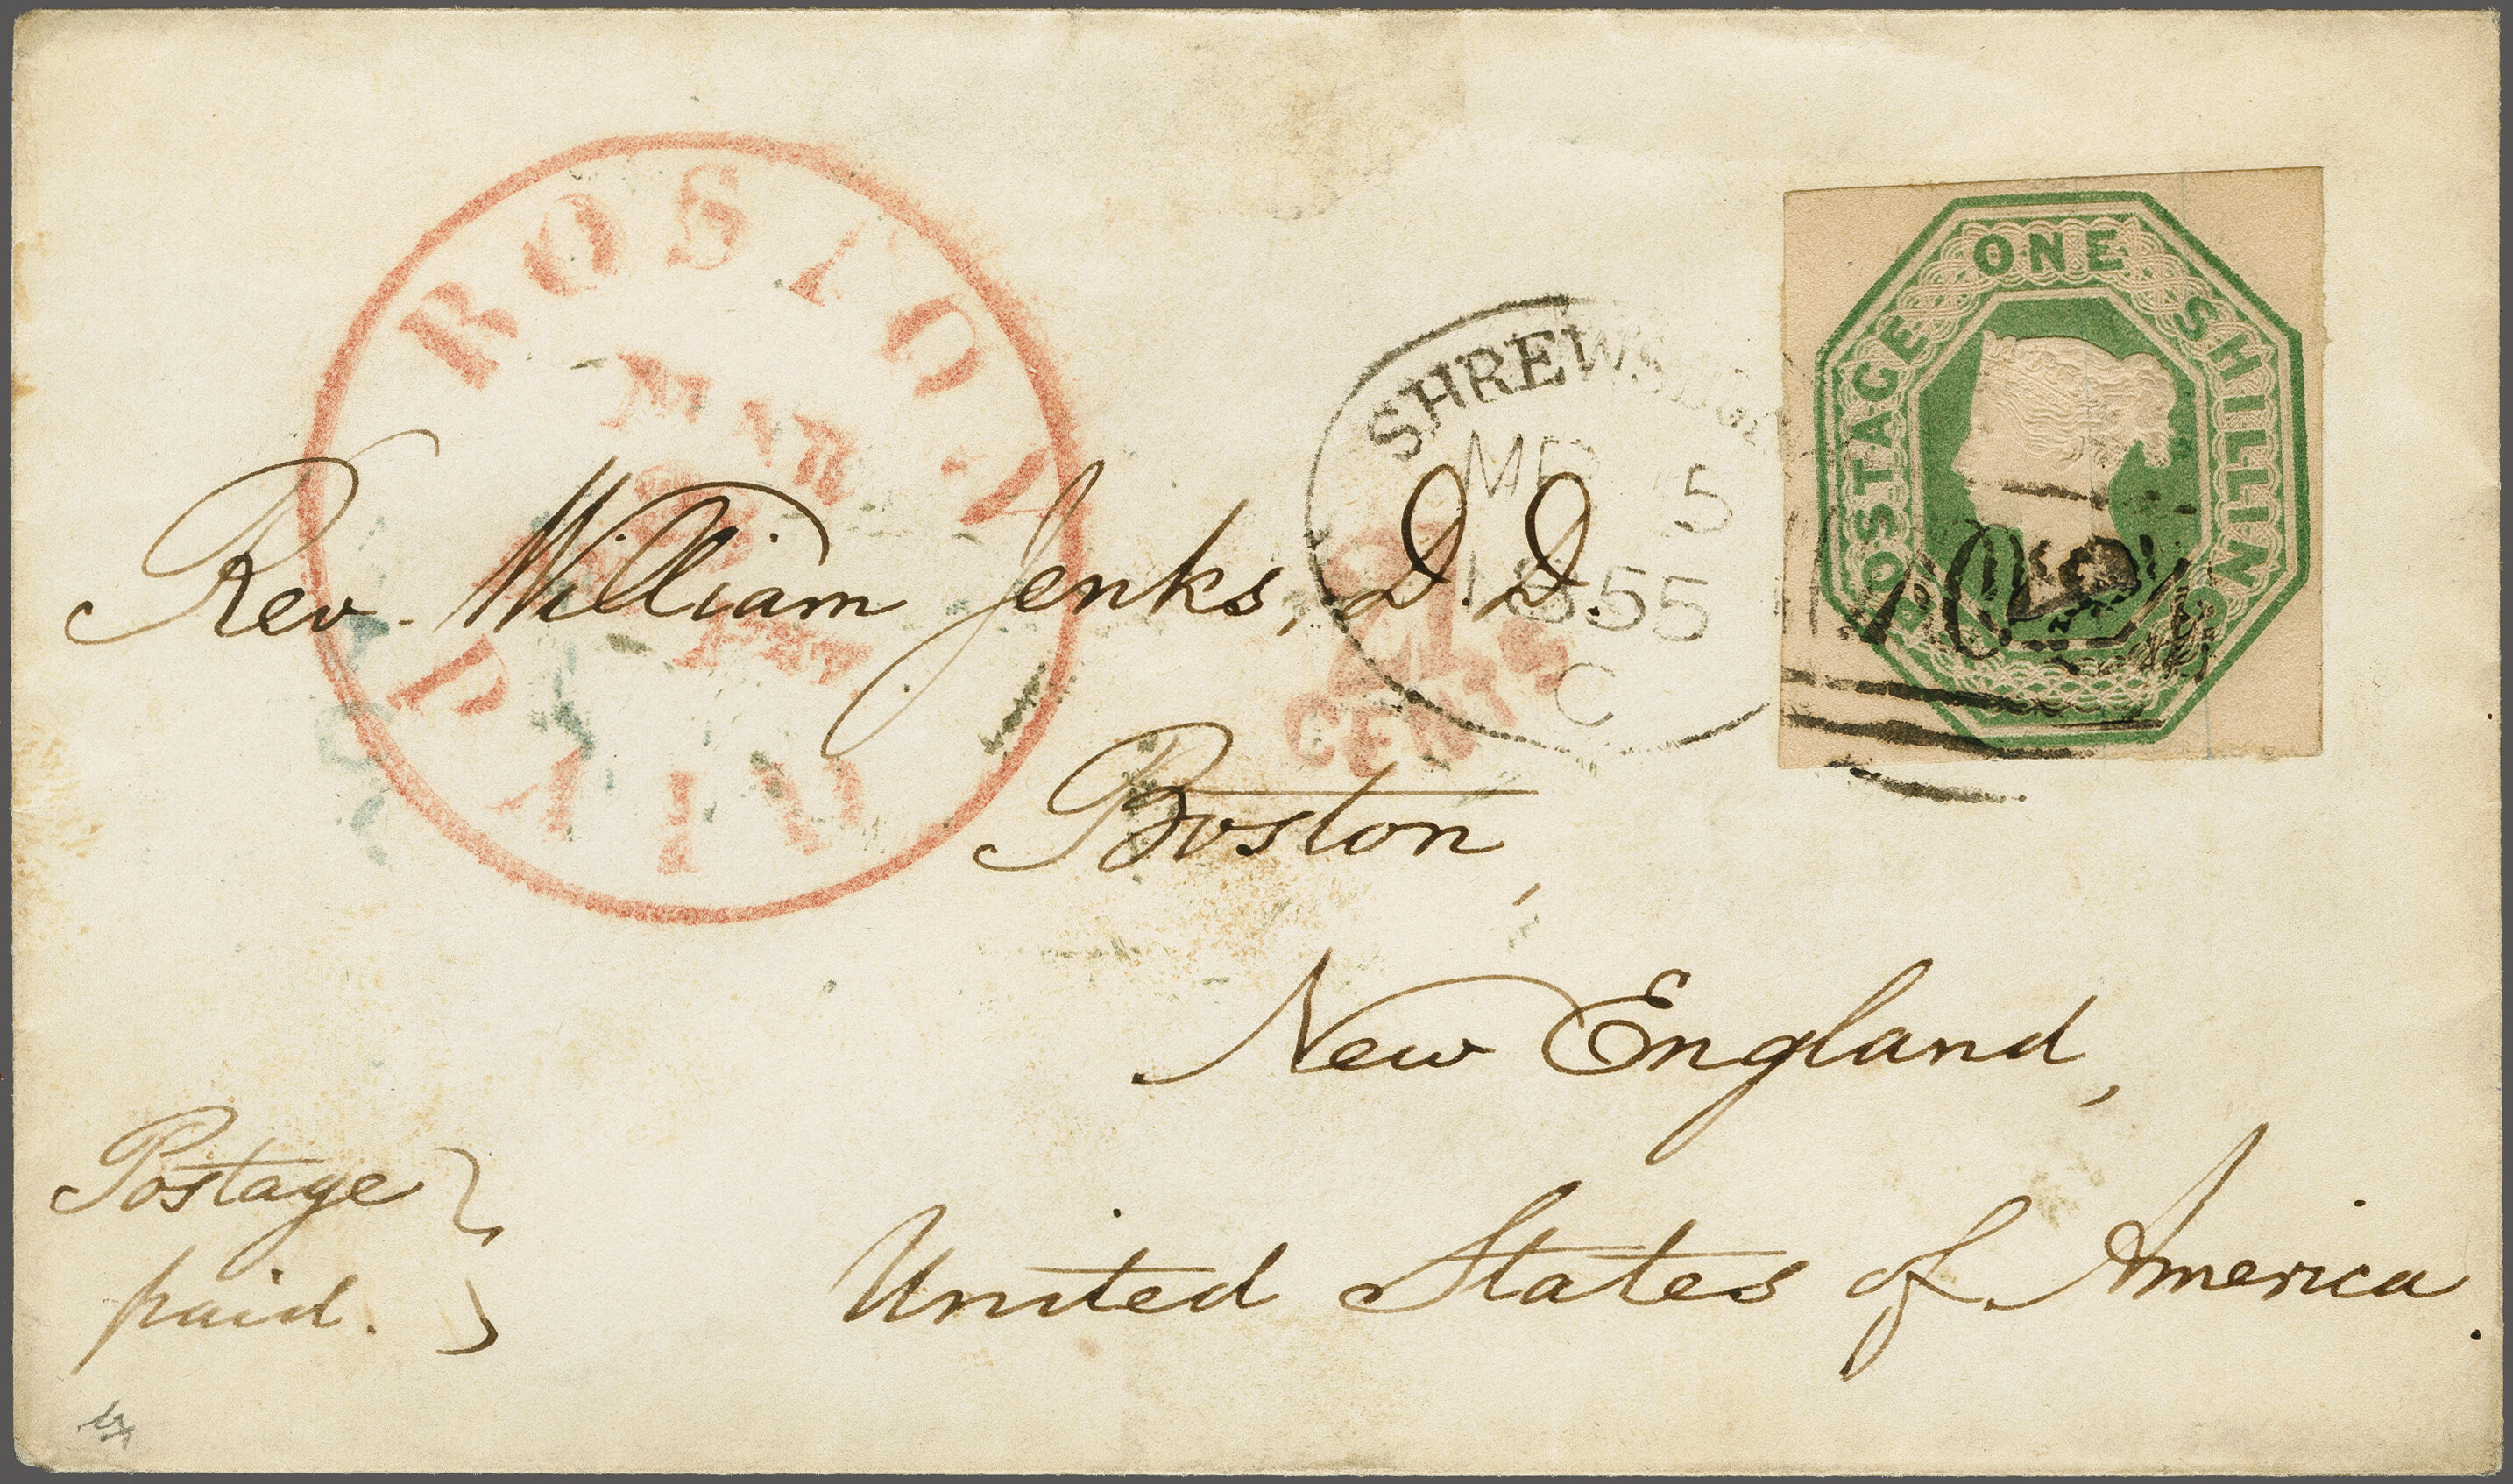 BOSTON
MAR
PAID
SHREWSBURY
MR 5
1855
C
ONE SHILLING
POSTAGE
Rev. William Jenks, D.D.
21
CENTS
Boston,
New England,
United States of America.
Postage
paid.